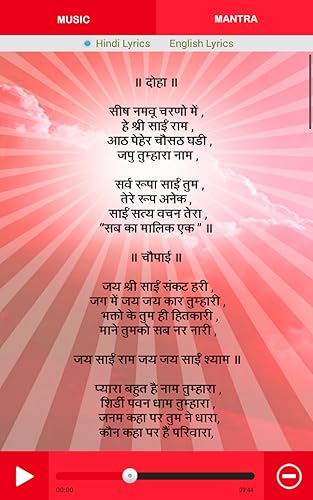 MUSIC
MANTRA
Hindi Lyrics
English Lyrics
॥ दोहा ॥
सीष नमवू चरणो में ,
हे श्री साईं राम ,
आठ पेहेर चौसठ घडी ,
जपु तुम्हारा नाम ,
सर्व रूपा साईं तुम ,
तेरे रूप अनेक ,
साईं सत्य वचन तेरा ,
“सब का मालिक एक ” ॥
॥ चौपाई ॥
जय श्री साईं संकट हरी ,
जग में जय जय कार तुम्हारी ,
भक्तो के तुम ही हितकारी ,
माने तुमको सब नर नारी ,
जय साईं राम जय जय साईं श्याम ॥
प्यारा बहुत हैं नाम तुम्हारा ,
शिर्डी पवन धाम तुम्हारा ,
जनम कहा पर तुम ने धारा,
कौन कहा पर हैं परिवारा,
00:00
29:44